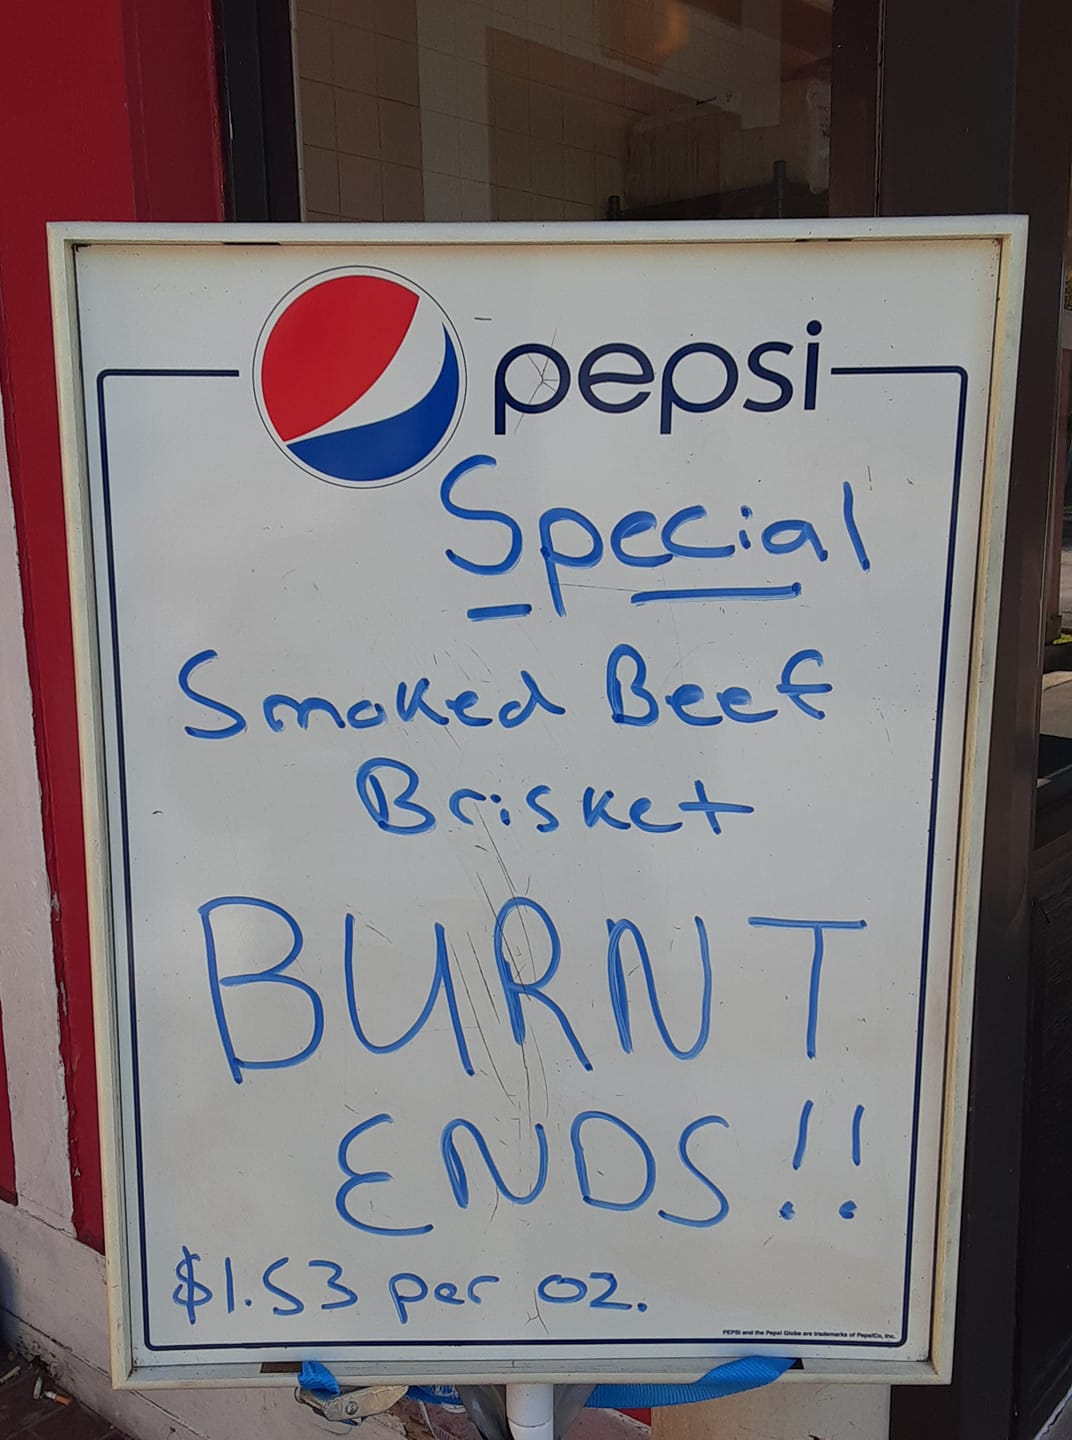 pepsi
Special
Smoked Beef
Brisket
BURNT
ENDS!!
$1.53 per oz.
PEPSI and the Pepsi Globe are trademarks of PepsiCo, Inc.